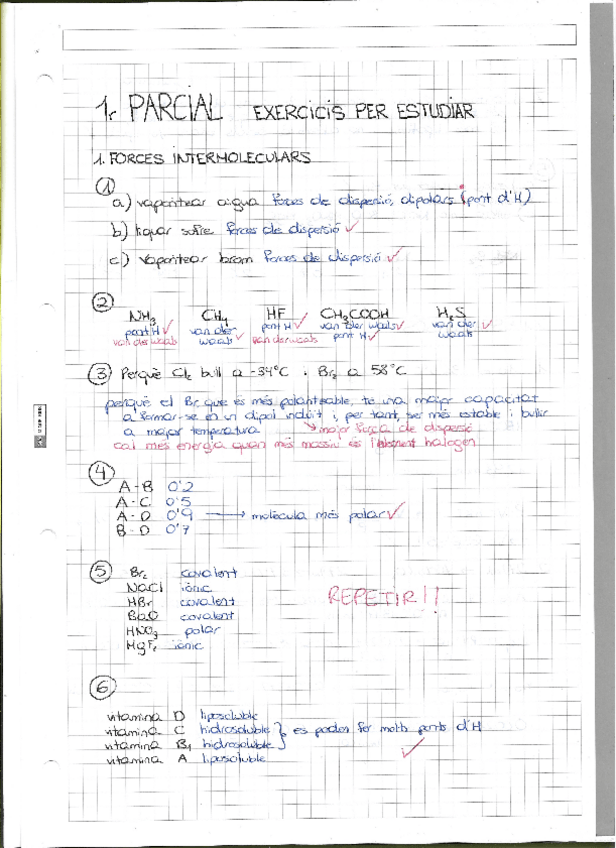 1r PARCIAL EXERCICIS PER ESTUDIAR
1. FORCES INTERMOLECULARS
①
a) vaporitzar aigua forces de dispersió, dipolars (pont d'H)
b) liquar sofre forces de dispersió ✓
c) vaporitzar brom forces de dispersió ✓
②
NH₃ CH₄ HF CH₃COOH H₂S
pont H ✓ van der pont H ✓ van der waals ✓ van der ✓
van der waals waals ✓ van der waals pont H ✓ waals
③ Perquè Cl₂ bull a -34°C i Br₂ a 58°C
perquè el Br₂ que és més polaritzable, té una major capacitat
a formar-se en un dipol induït i, per tant, ser més estable i bullir
a major temperatura → major força de dispersió
cal més energia quan més massiu és l'element halogen
④
A-B 0'2
A-C 0'5
A-D 0'9 → molècula més polar ✓
B-D 0'7
⑤ Br₂ covalent
NaCl iònic
HBr covalent REPETIR!!
BaO covalent
HNO₃ polar
MgF₂ iònic
⑥
vitamina D liposoluble
vitamina C hidrosoluble } es poden fer molts ponts d'H
vitamina B₁ hidrosoluble ✓
vitamina A liposoluble